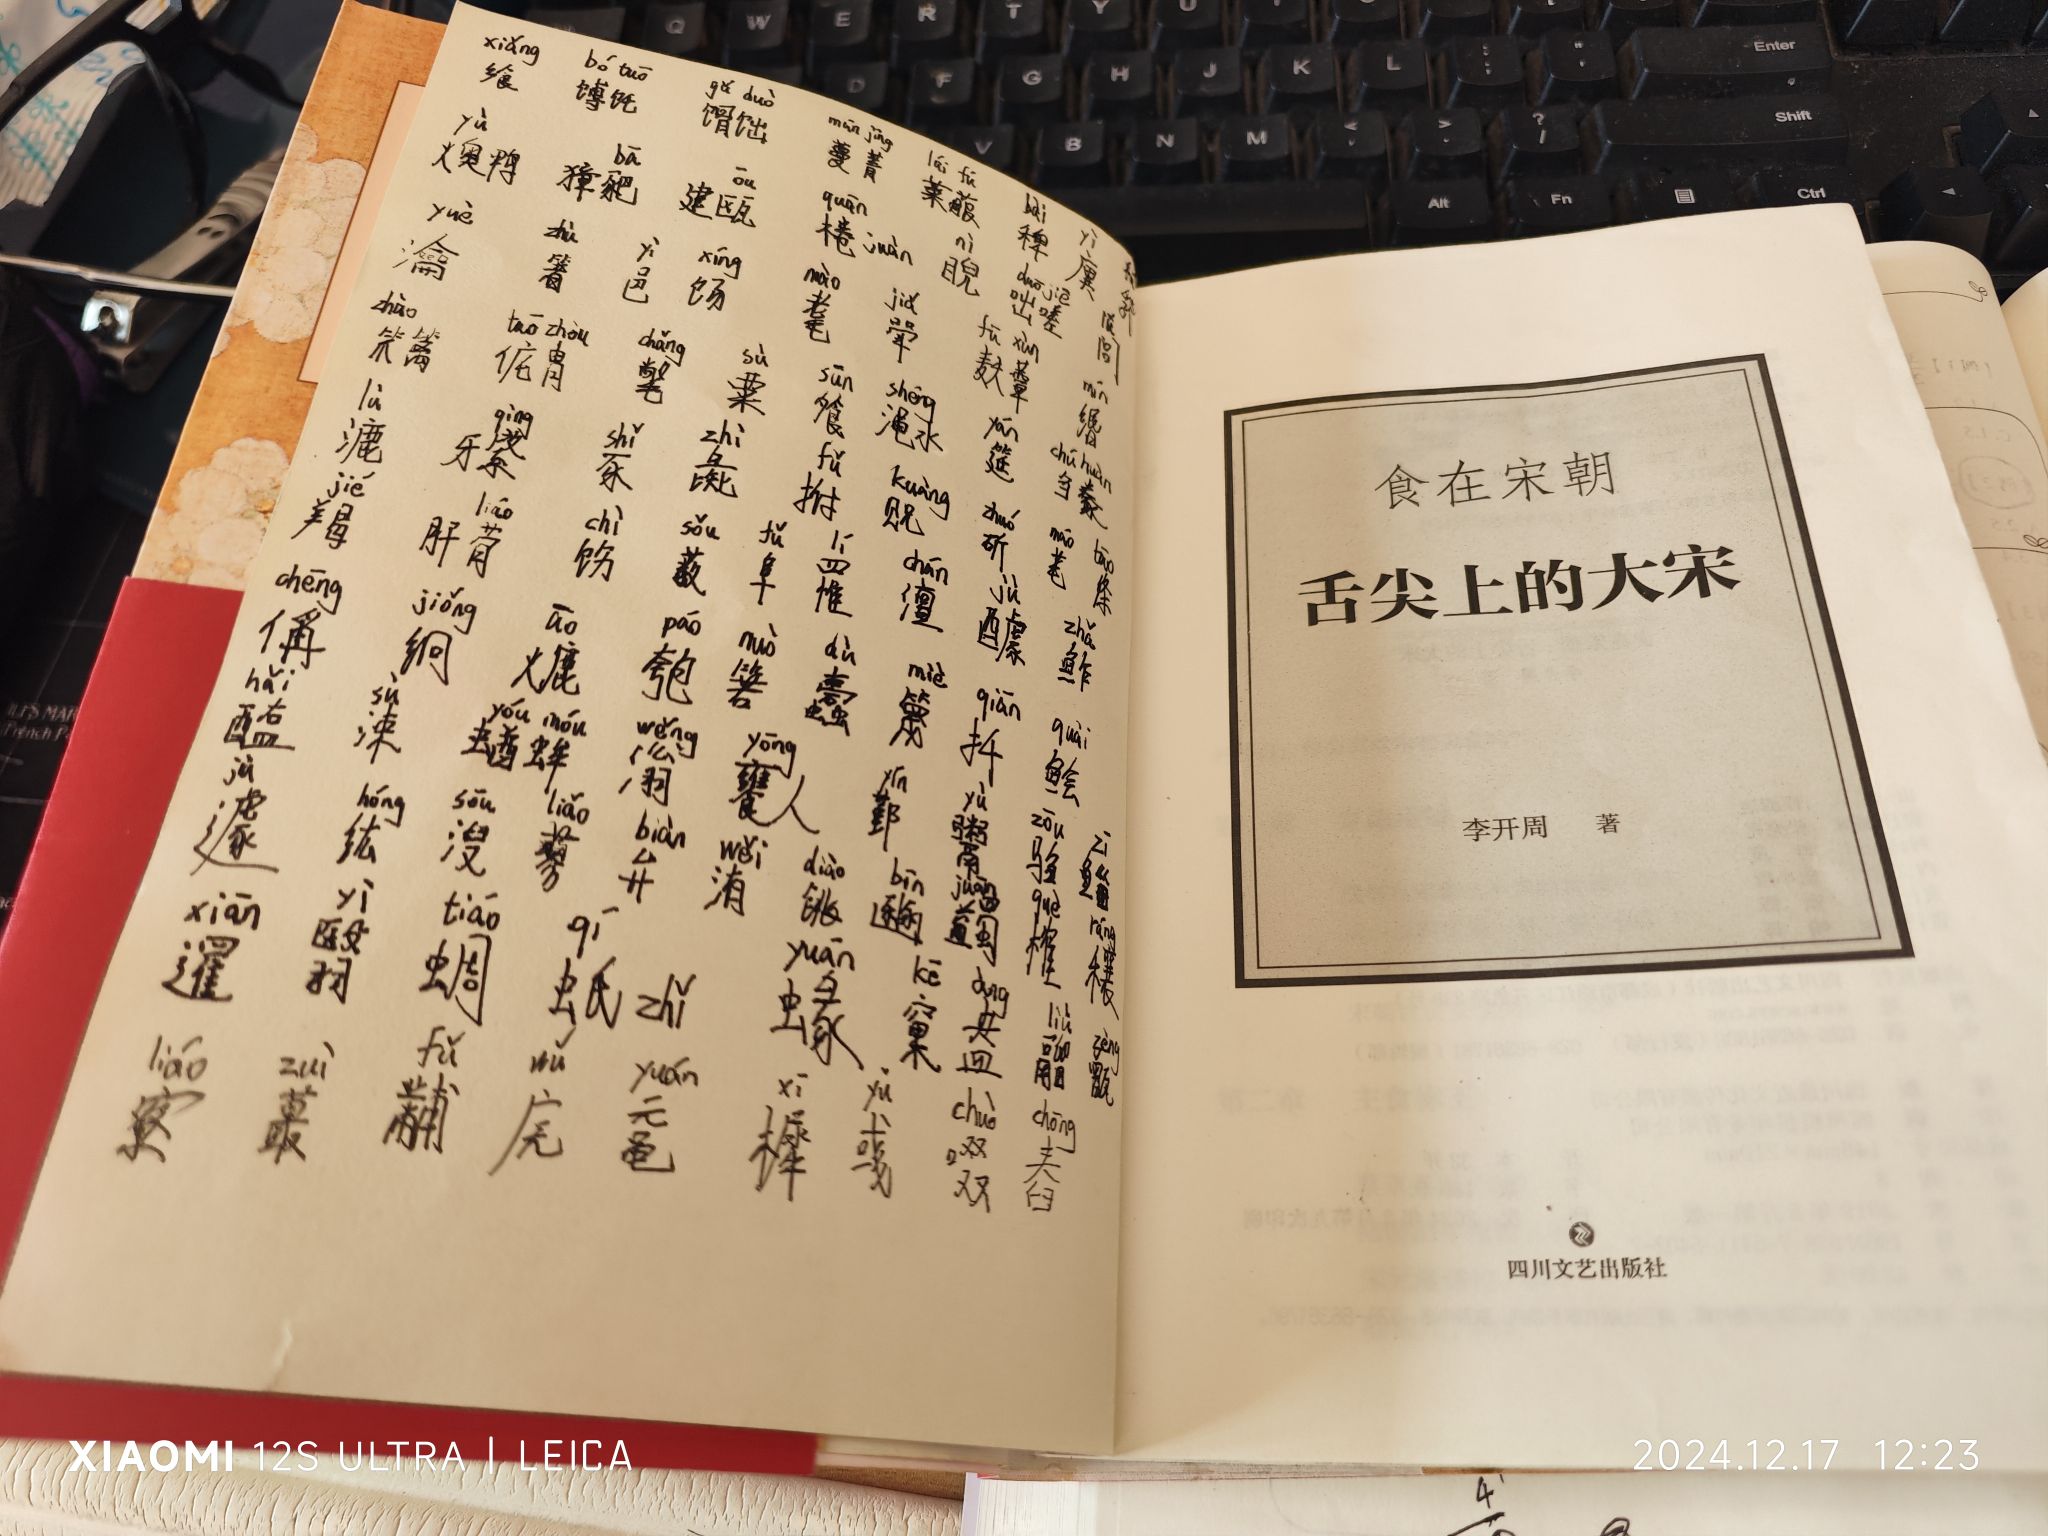 Q W E R T Y U
D F G H J K L Enter
V B N M < > ? / Shift
Alt Fn Ctrl
xiǎng bó tuō duò
飨 馎饦 馉饳
mán jīng lái fú bài
蔓菁 莱菔 稗
yù bā ōu quān juàn nì yì
燠鸭 獐豝 建瓯 棬 睨 廙
yuè zhù yì xíng mào duō jiē
瀹 箸 邑 饧 耄 咄嗟
zhào chǎng sù jiǎ fū xùn
笊篱 氅 粟 斝 麸蕈
lù qìng shǐ zhì sūn shéng mín
漉 牙 豕 彘 飧 渑水 缗
jié liáo chì sǒu fǔ kuàng yán chú huàn
羯 肝膋 饬 薮 拊 贶 筵 刍豢
chēng jiǒng āo páo fù lí chán zhuó mào tāo
偁 絅 爊 匏 阜 罹 儃 斫 芼 绦
hǎi sù yóu móu wěng nuò dù miè jù zhǎ
醢 涑 蝤蛑 滃 箬 蠹 篾 醵 鲊
jù hóng sōu liǎo biàn yōng yín qiān kuài
遽 纮 溲 蓼 弁 饔人 鄞 扦 鲙
xiān yì tiáo qí wěi diào bīn yù zōu zī
暹 翳 蜩 蚳 洧 铫 豳 鬻 驺 鲻
zhǐ yuán kē juān què ráng
蝝 窠 蠲 榷 穰
liáo zuì fǔ hǔ yuán xī yù chuò chōng zèng
寮 蕞 黼 虎 鼋 樨 彧 啜 舂 甑
食在宋朝
舌尖上的大宋
李开周 著
四川文艺出版社
XIAOMI 12S ULTRA | LEICA
2024.12.17 12:23